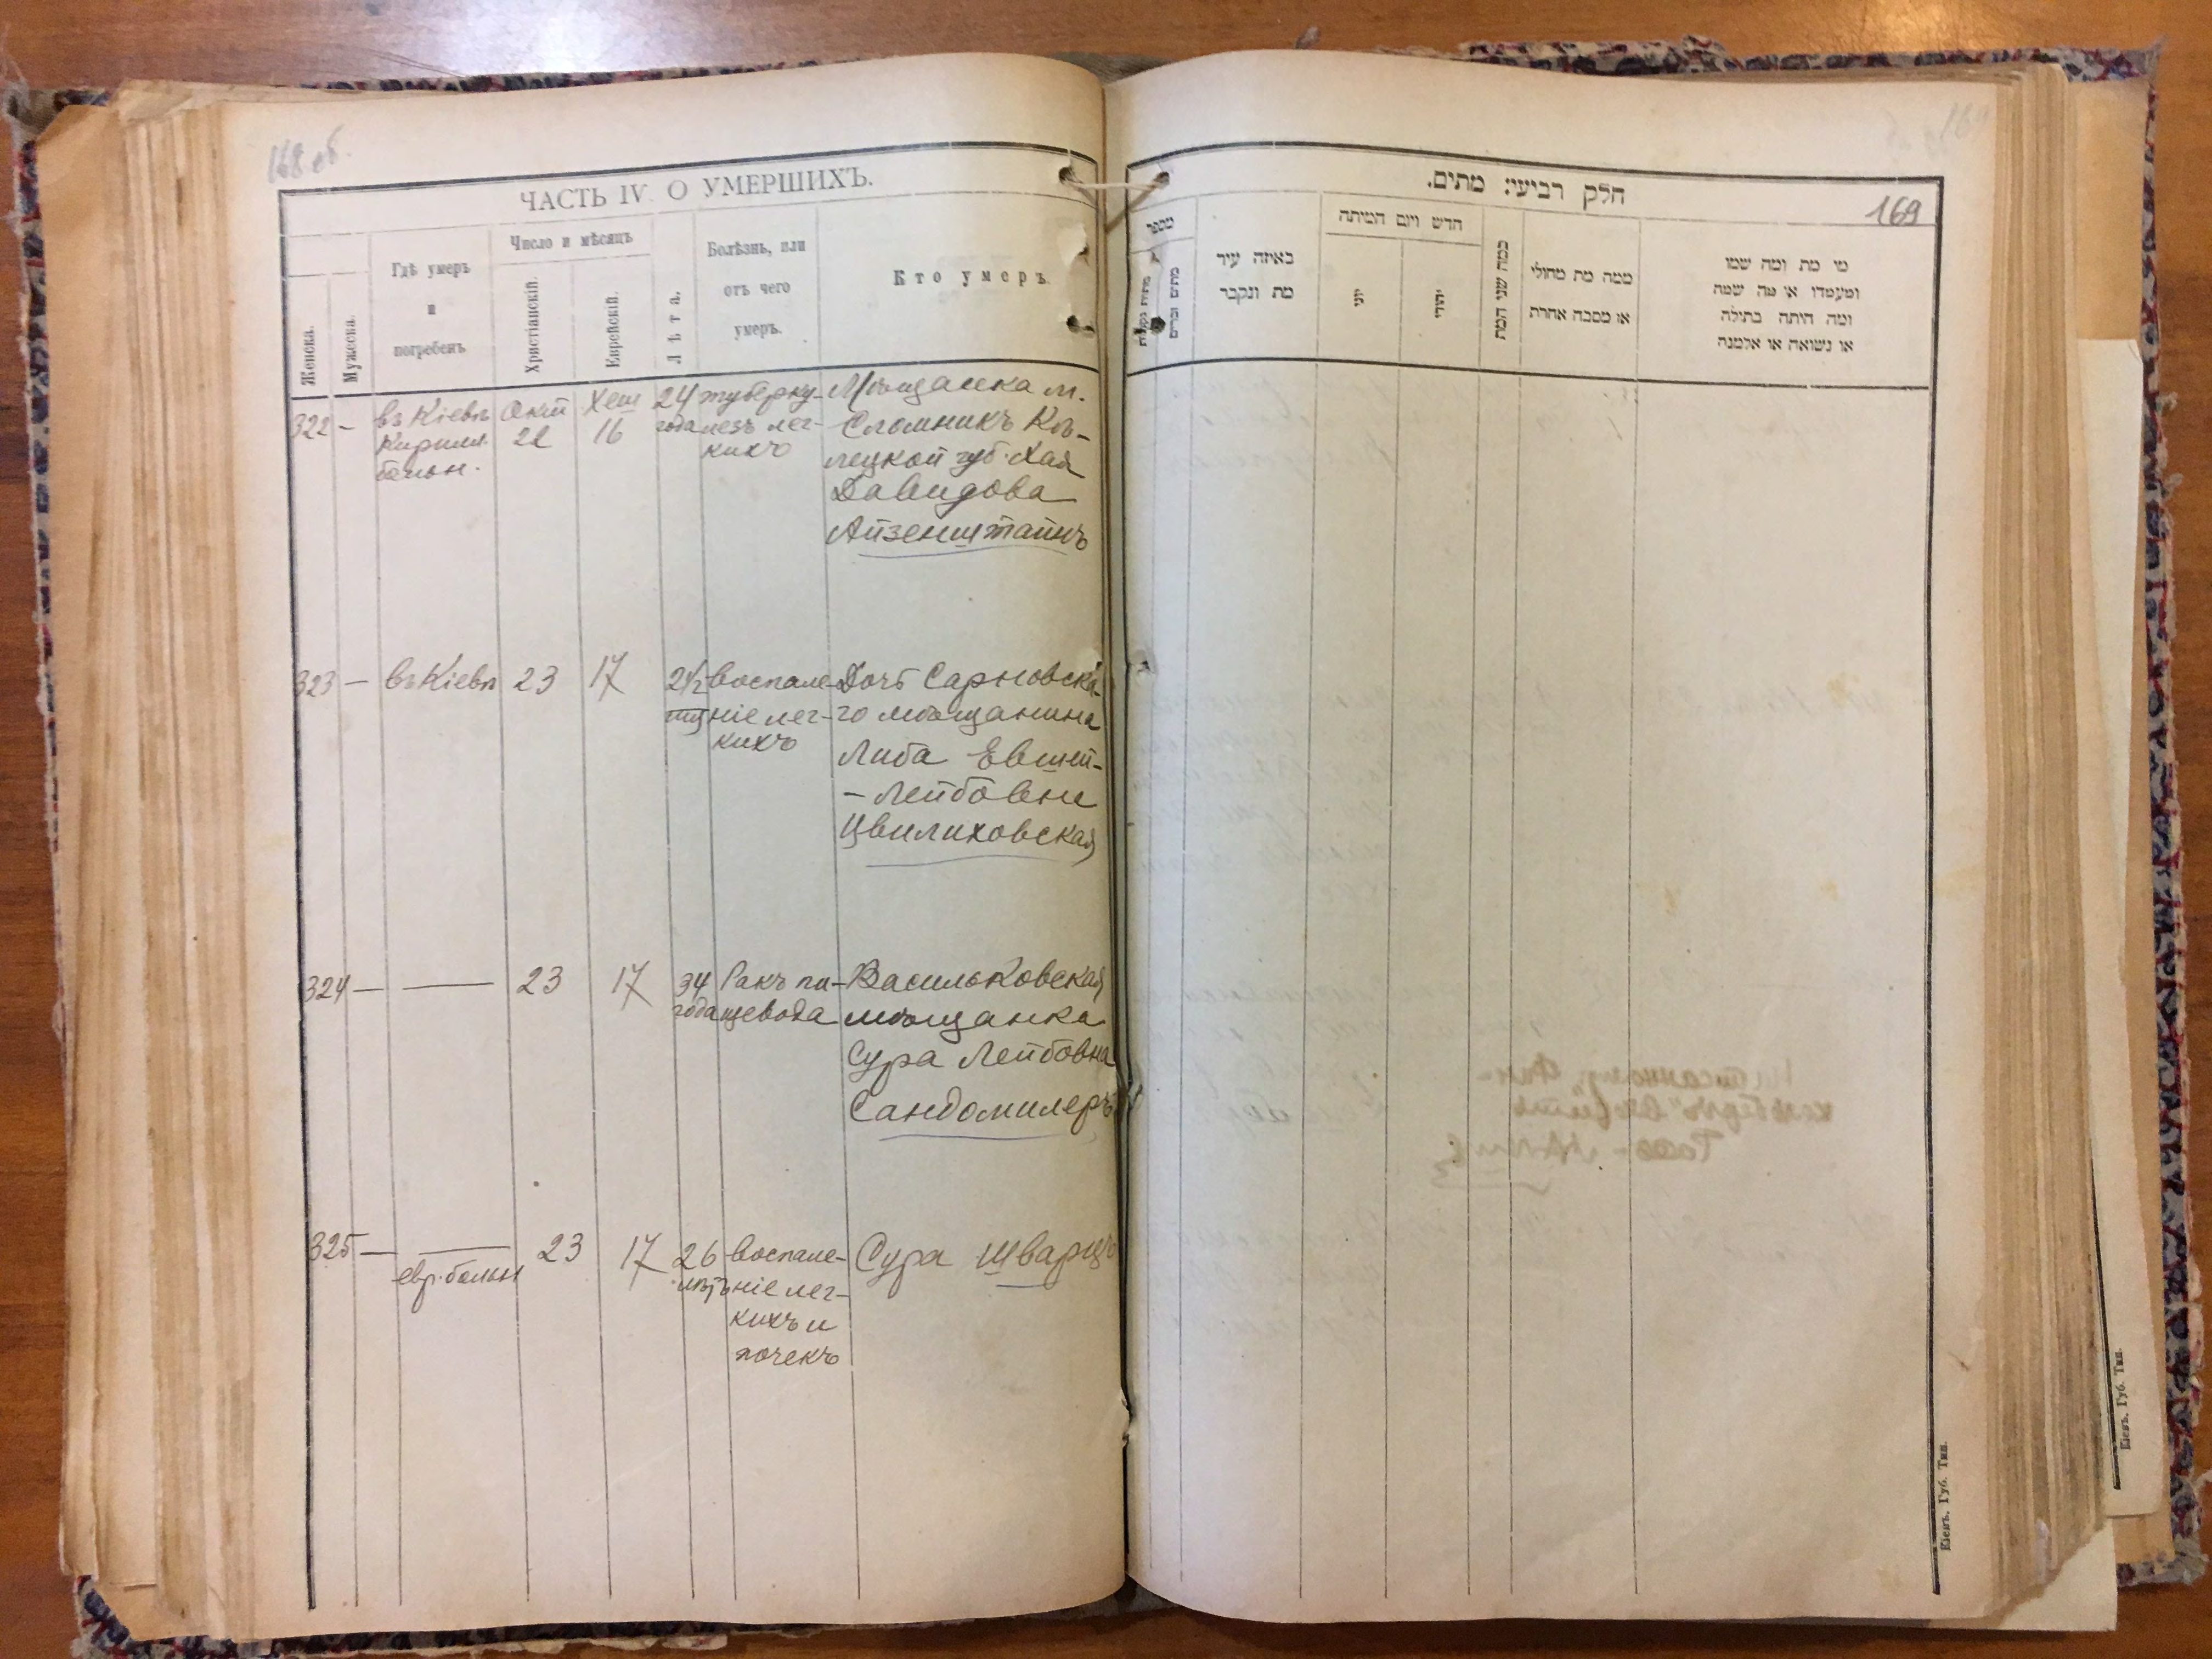 168 об.
ЧАСТЬ IV. О УМЕРШИХЪ.
Женска.
Мужеска.
Гдѣ умеръ
и
погребенъ
Число и мѣсяцъ
Христіанскій.
Еврейскій.
Лѣта.
Болѣзнь, или
отъ чего
умеръ.
Кто умеръ
322 — въ Кіевѣ Окт Хеш 24 туберку- Мѣщанка м.
Кирилл. 22 16 года лезъ лег- Сломникъ Кѣ-
больн. кихъ лецкой губ. Хая
Давидова
Айзенштайнъ
323 — въ Кіевѣ 23 17 2½ воспале- Дочь Сарновска-
ніе лег- го мѣщанина
кихъ Либа Евшей-
- Лейбовна
Цвилиховская
324 — — 23 17 34 Ракъ пи- Васильковская
года щевода мѣщанка
Сура Лейбовна
Сандомилеръ
325 — — 23 17 26 воспале- Сура Шварцъ
евр. больн лѣтъ ніе лег-
кихъ и
почекъ
חלק רביעי: מתים.
169
מספר
מתים זכרים
באיזה עיר
מת ונקבר
חדש ויום המיתה
יוני
יהודי
כמה שני המת
ממה מת מחולי
או מסבה אחרת
מי מת ומה שמו
ומעמדו או מה שמה
ומה היתה בתולה
או נשואה או אלמנה
Кіевъ. Губ. Тип.
Кіевъ. Губ. Тип.